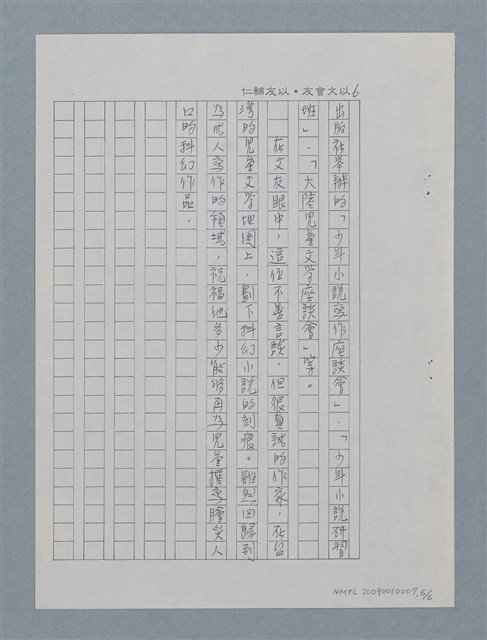 仁輔友以・友會文以6
出版社舉辦的「少年小說寫作座談會」、「少年小說研習
班」、「大陸兒童文學座談會」等。
在文友眼中，這位不善言談，但很真誠的作家，在台
灣的兒童文學地圖上，劃下科幻小說的刻痕。雖然回歸到
為成人寫作的領域，祝福他多少能夠再為兒童撰寫膾炙人
口的科幻作品。
NMTL 20090010007.6/6